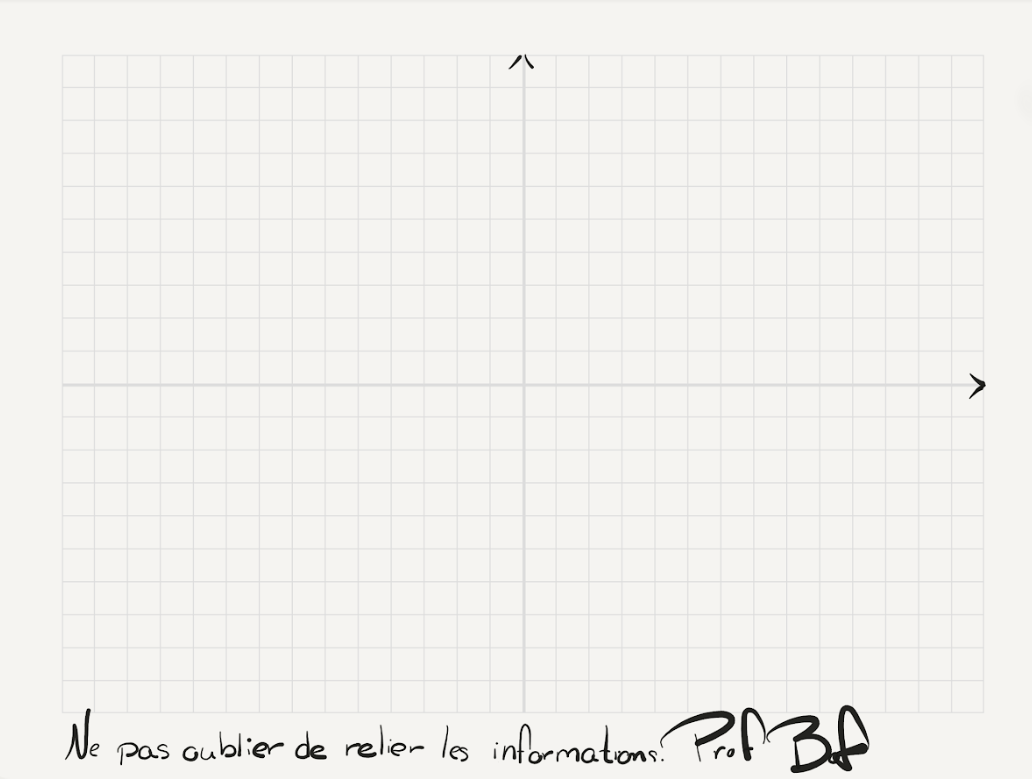 Ne pas oublier de relier les informations! Prof